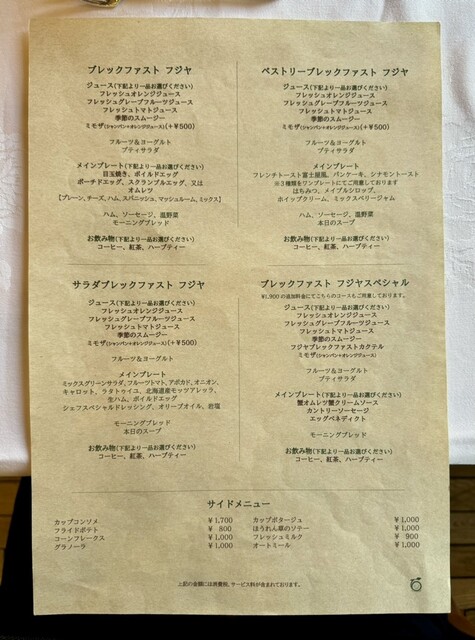 ブレックファスト フジヤ
ジュース(下記より一品お選びください)
フレッシュオレンジジュース
フレッシュグレープフルーツジュース
フレッシュトマトジュース
季節のスムージー
ミモザ(シャンパン+オレンジジュース)(+¥500)
フルーツ&ヨーグルト
プティサラダ
メインプレート(下記より一品お選びください)
目玉焼き、ボイルドエッグ
ポーチドエッグ、スクランブルエッグ、又は
オムレツ
【プレーン、チーズ、ハム、スパニッシュ、マッシュルーム、ミックス】
ハム、ソーセージ、温野菜
モーニングブレッド
お飲み物(下記より一品お選びください)
コーヒー、紅茶、ハーブティー
ペストリーブレックファスト フジヤ
ジュース(下記より一品お選びください)
フレッシュオレンジジュース
フレッシュグレープフルーツジュース
フレッシュトマトジュース
季節のスムージー
ミモザ(シャンパン+オレンジジュース)(+¥500)
フルーツ&ヨーグルト
プティサラダ
メインプレート
フレンチトースト富士屋風、パンケーキ、シナモントースト
※3種類をワンプレートにてご用意しております
はちみつ、メイプルシロップ、
ホイップクリーム、ミックスベリージャム
ハム、ソーセージ、温野菜
本日のスープ
お飲み物(下記より一品お選びください)
コーヒー、紅茶、ハーブティー
サラダブレックファスト フジヤ
ジュース(下記より一品お選びください)
フレッシュオレンジジュース
フレッシュグレープフルーツジュース
フレッシュトマトジュース
季節のスムージー
ミモザ(シャンパン+オレンジジュース)(+¥500)
フルーツ&ヨーグルト
メインプレート
ミックスグリーンサラダ、フルーツトマト、アボカド、オニオン、
キャロット、ラタトゥイユ、北海道産モッツアレッラ、
生ハム、ボイルドエッグ
シェフスペシャルドレッシング、オリーブオイル、岩塩
モーニングブレッド
本日のスープ
お飲み物(下記より一品お選びください)
コーヒー、紅茶、ハーブティー
ブレックファスト フジヤスペシャル
¥1,900の追加料金にてこちらのコースもご用意しております。
ジュース(下記より一品お選びください)
フレッシュオレンジジュース
フレッシュグレープフルーツジュース
フレッシュトマトジュース
季節のスムージー
フジヤブレックファストカクテル
ミモザ(シャンパン+オレンジジュース)
フルーツ&ヨーグルト
プティサラダ
メインプレート(下記より一品お選びください)
蟹オムレツ蟹クリームソース
カントリーソーセージ
エッグベネディクト
モーニングブレッド
お飲み物(下記より一品お選びください)
コーヒー、紅茶、ハーブティー
サイドメニュー
カップコンソメ ¥1,700
フライドポテト ¥ 800
コーンフレークス ¥1,000
グラノーラ ¥1,000
カップポタージュ ¥1,000
ほうれん草のソテー ¥1,000
フレッシュミルク ¥ 900
オートミール ¥1,000
上記の金額には消費税、サービス料が含まれております。